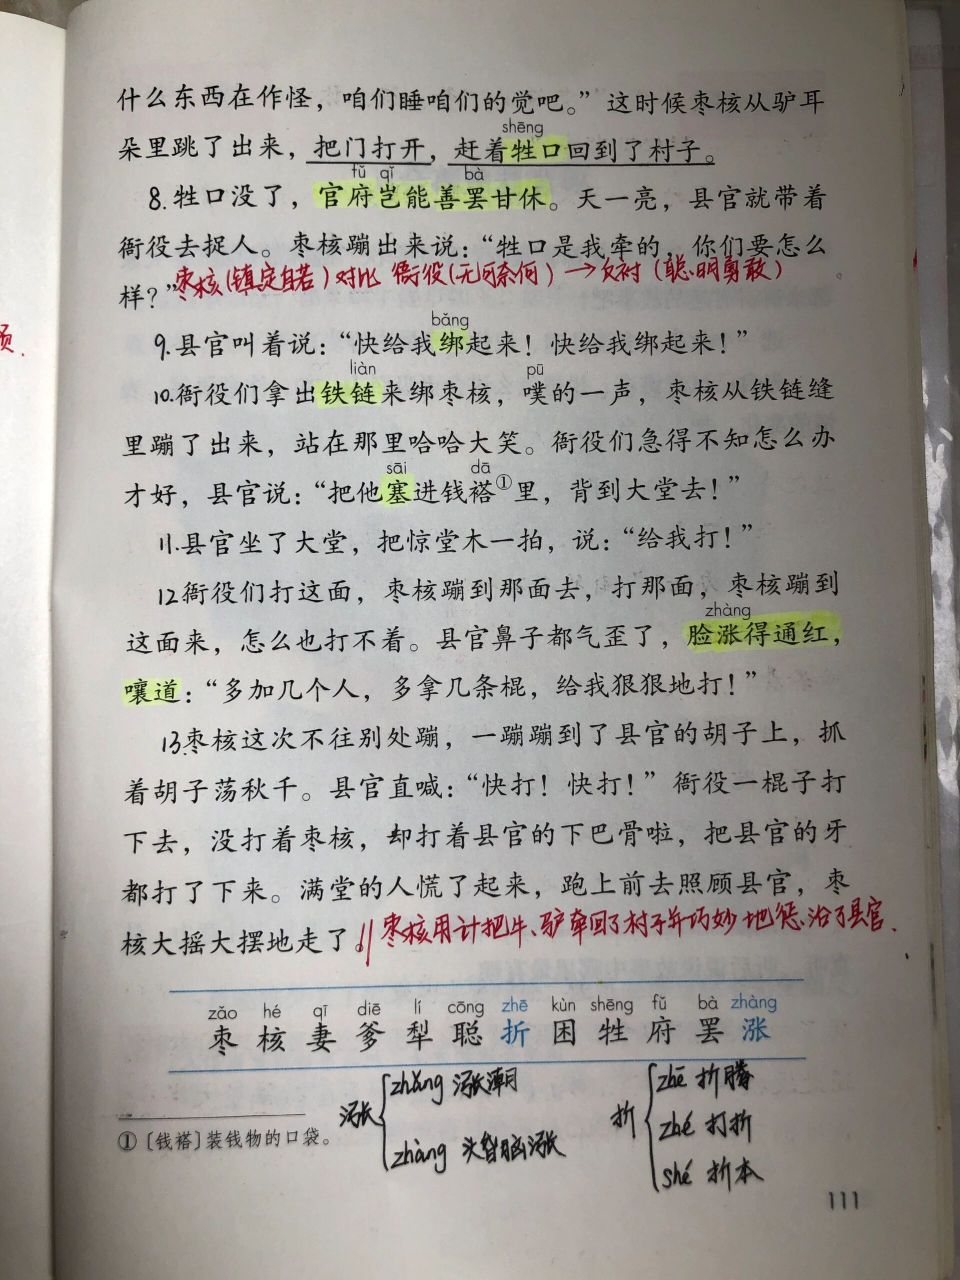 什么东西在作怪，咱们睡咱们的觉吧。”这时候枣核从驴耳
shēng
朵里跳了出来，把门打开，赶着牲口回到了村子。
fǔ qǐ bà
8.牲口没了，官府岂能善罢甘休。天一亮，县官就带着
衙役去捉人。枣核蹦出来说：“牲口是我牵的，你们要怎么
枣核(镇定自若)对比 衙役(无可奈何)→反衬(聪明勇敢)
样？”
bǎng
9.县官叫着说：“快给我绑起来！快给我绑起来！”
liàn pū
10.衙役们拿出铁链来绑枣核，噗的一声，枣核从铁链缝
里蹦了出来，站在那里哈哈大笑。衙役们急得不知怎么办
sāi dā
才好，县官说：“把他塞进钱褡①里，背到大堂去！”
11.县官坐了大堂，把惊堂木一拍，说：“给我打！”
12衙役们打这面，枣核蹦到那面去，打那面，枣核蹦到
zhàng
这面来，怎么也打不着。县官鼻子都气歪了，脸涨得通红，
嚷道：“多加几个人，多拿几条棍，给我狠狠地打！”
13.枣核这次不往别处蹦，一蹦蹦到了县官的胡子上，抓
着胡子荡秋千。县官直喊：“快打！快打！”衙役一棍子打
下去，没打着枣核，却打着县官的下巴骨啦，把县官的牙
都打了下来。满堂的人慌了起来，跑上前去照顾县官，枣
核大摇大摆地走了。// 枣核用计把牛、驴牵回了村子并巧妙地惩治了县官.
zǎo hé qī diē lí cōng zhē kùn shēng fǔ bà zhàng
枣 核 妻 爹 犁 聪 折 困 牲 府 罢 涨
涨 zhǎng 涨潮
zhàng 头昏脑涨
折 zhē 折腾
zhé 打折
shé 折本
①〔钱褡〕装钱物的口袋。
111